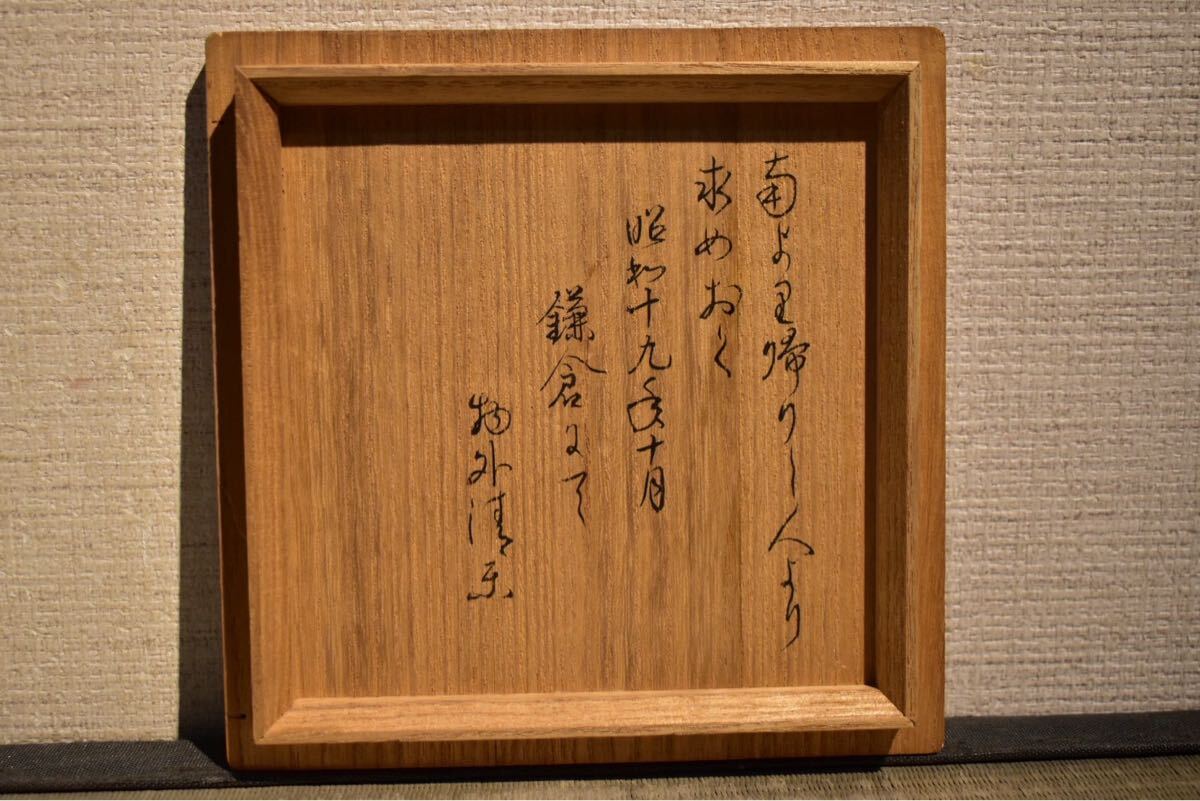 南より帰りし人より
求めおく
昭和十九年十月
鎌倉にて
物外清楽